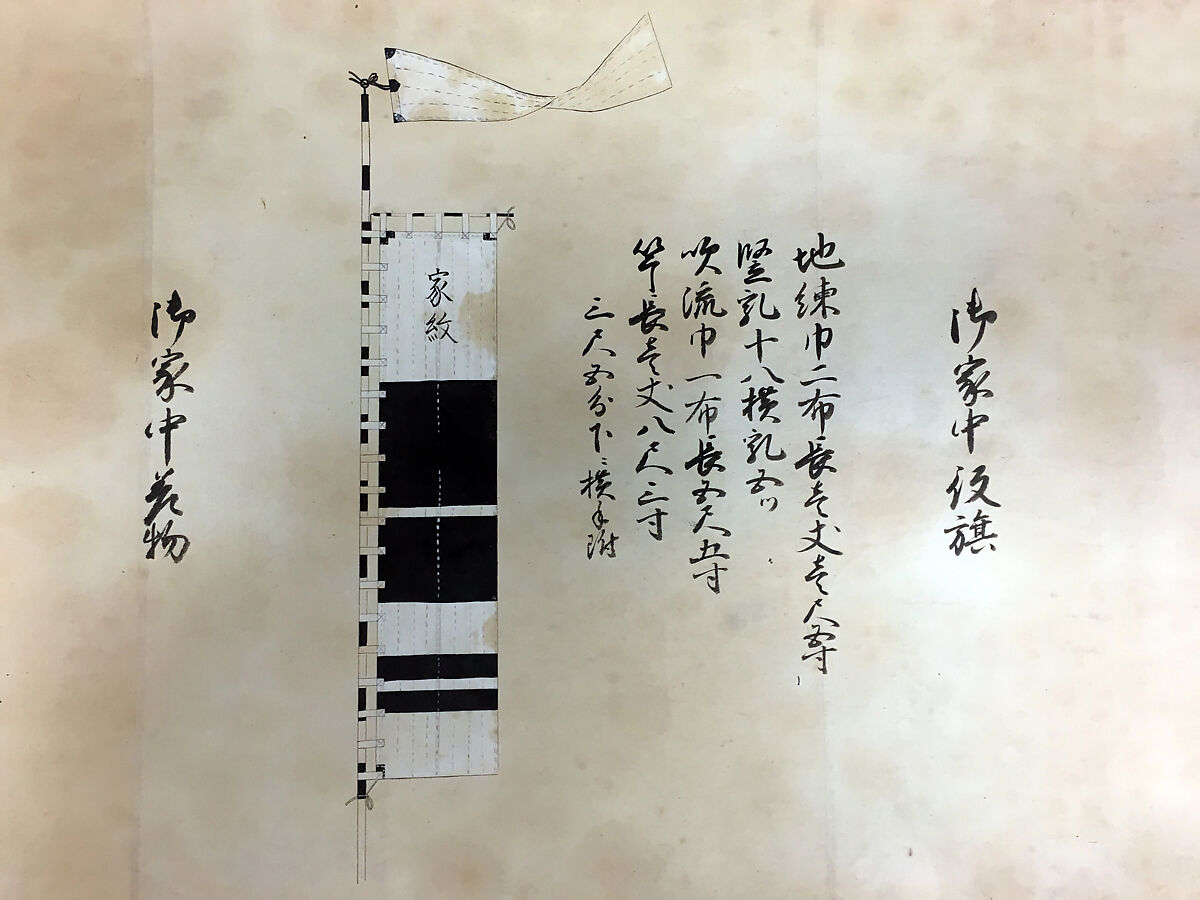 御家中役旗
地練巾二布長壱丈壱尺五寸
竪乳十八横乳五ツ
吹流巾一布長五尺五寸
竿長壱丈八尺三寸
三尺五分下ニ横手附
家紋
御家中差物